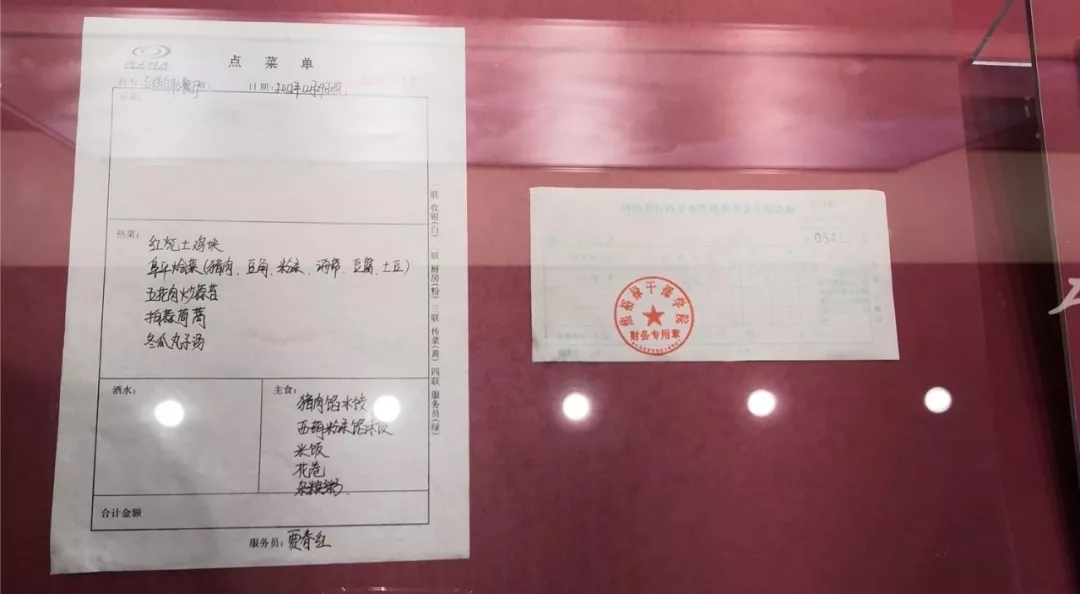 点菜单
日期：2012年12月29日
热菜：
红烧土鸡块
阜平烩菜(猪肉、豆角、粉条、海带、豆腐、土豆)
五花肉炒蒜苔
拍蒜茼蒿
冬瓜丸子汤
酒水：
主食：
猪肉馅水饺
西葫粉条馅水饺
米饭
花卷
杂粮粥
合计金额
服务员：贾春红
一联 收银(白) 二联 厨房(粉) 三联 传菜(黄) 四联 服务员(绿)
焦裕禄干部学院
财务专用章